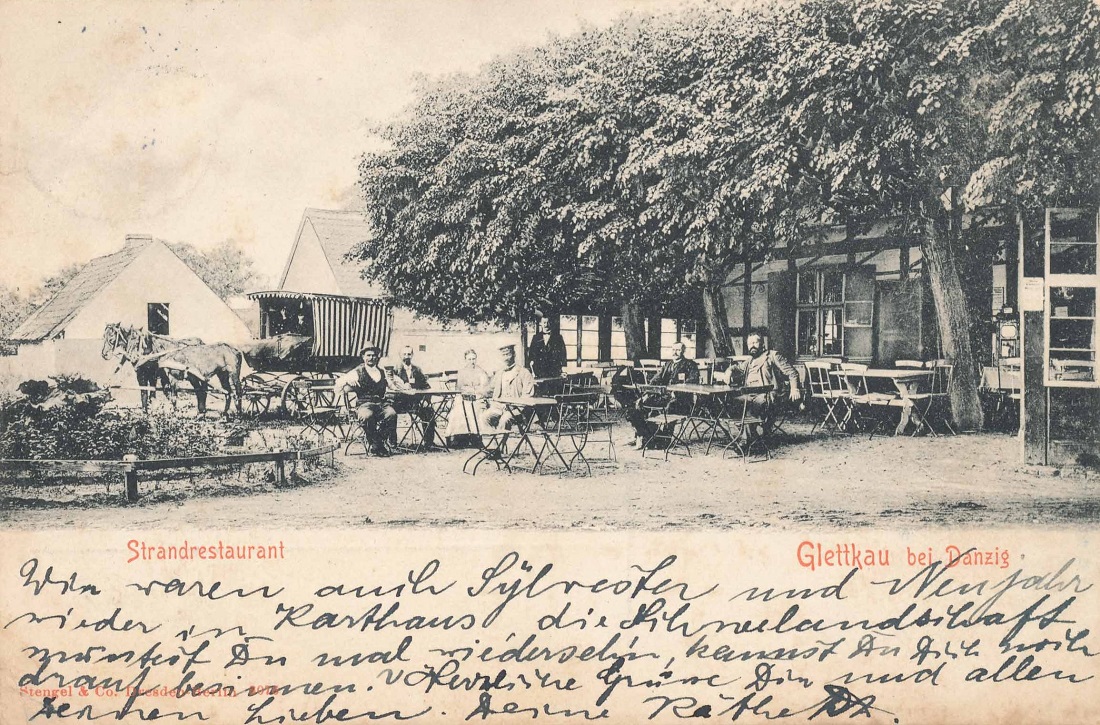 Strandrestaurant
Glettkau bei Danzig
Wir waren auch Sylvester und Neujahr
wieder in Karthaus die Schneelandschaft
müsstest Du mal wiedersehn, kannst Du Dich noch
drauf besinnen. Herzliche Grüsse Dir und allen
Deinen Lieben. Deine Käthe
Stengel & Co. Dresden-Berlin